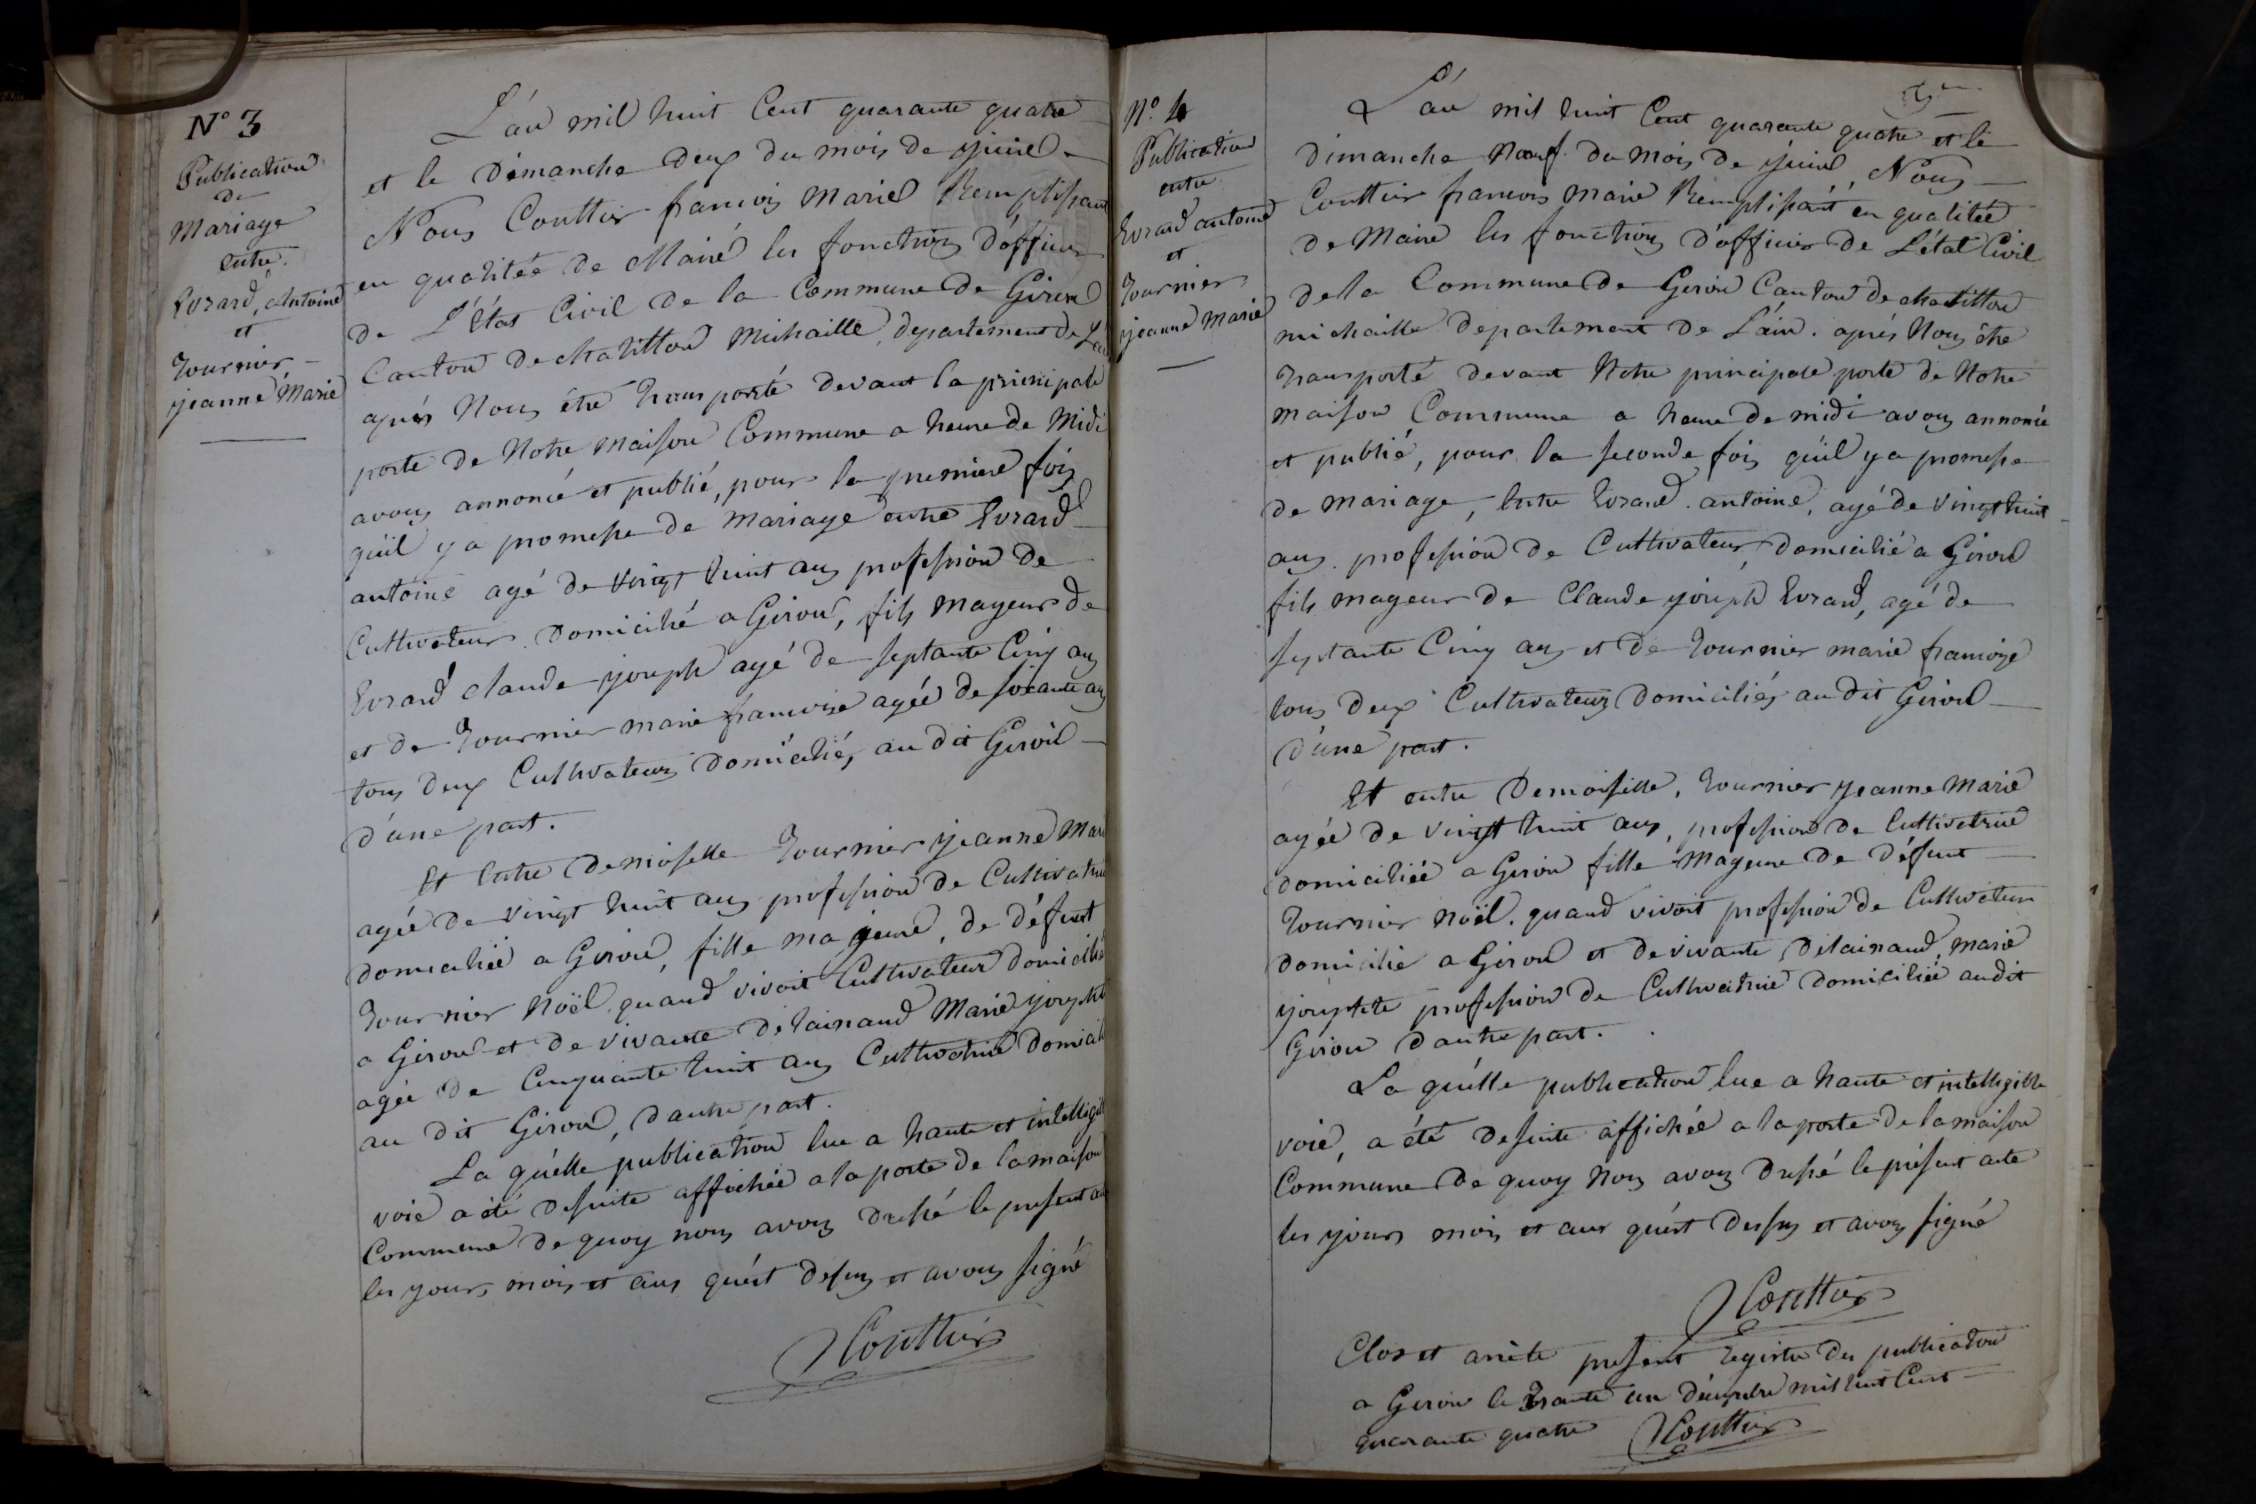 N° 3
Publication
de
Mariage
entre
Evrard, Antoine
et
Tournier
jeanne Marie
L'an mil huit Cent quarante quatre
et le Dimanche deux du mois de juin
Nous Couttier francois Marie Remplissant
en qualitée de Maire les fonctions d'officier
de L'État Civil de la Commune de Giron
Canton de chatillon Michaille, departement de L'ain
aprés Nous étre transporté devant la principale
porte de Notre Maison Commune a heure de Midi
avons annoncé et publié, pour la premiere fois
qu'il y a promesse de Mariage entre Evrard
antoine agé de vingt huit ans profession de
Cultivateur Domicilié a Giron, fils mageur de
Evrard claude joseph agé de septante Cinq ans
et de Tournier marie francoise agée de soixante ans
tous deux Cultivateurs Domiciliés au dit Giron
d'une part.
Et Entre Demoiselle Tournier jeanne Marie
agée de vingt huit ans profession de Cultivatrice
domiciliée a Giron, fille mageure, de défunt
Tournier Noël quand vivoit Cultivateur domicilié
a Giron et de vivante Detainaud Marie josephte
agée de Cinquante huit ans Cultivatrice Domiciliée
au dit Giron, d'autre part.
La quélle publication lue a haute et intelligible
voie a été desuite affichée a la porte de la maison
Commune de quoy nous avons dressé le present acte
les jours mois et ans qu'ést dessus et avons signé
Couttier
N° 4
Publication
entre
Evrard antoine
et
Tournier
jeanne Marie
L'an mil huit Cent quarante quatre et le
dimanche Neuf du mois de juin, Nous
Couttier francois Marie Remplissant en qualitée
de Maire les fonctions d'officier de L'état Civil
de la Commune de Giron Canton de chatillon
michaille departement de L'ain. aprés Nous étre
transporté devant Notre principale porte de Notre
maison Commune a heure de midi avons annoncé
et publié, pour la seconde fois qu'il y a promesse
de mariage, Entre Evrard antoine, agé de vingt huit
ans profession de Cultivateur, domicilié a Giron
fils mageur de Claude joseph Evrard, agé de
septante Cinq ans et de Tournier marie francoise
tous deux Cultivateurs Domiciliés au dit Giron
d'une part.
Et entre Demoiselle, Tournier jeanne Marie
agée de vingt huit ans, profession de Cultivatrice
domiciliée a Giron fille Mageure de défunt
Tournier Noël quand vivoit profession de Cultivateur
domicilié a Giron et de vivante, Detainaud, Marie
josephte profession de Cultivatrice domiciliée au dit
Giron d'autre part.
La quélle publication lue a haute et intelligible
voie, a été desuite affichée a la porte de la maison
Commune de quoy Nous avons dressé le présent acte
les jours mois et ans qu'ést dessus et avons signé
Couttier
Clos et arrèté present registre des publication
a Giron le trante un décembre mil huit Cent
quarante quatre Couttier